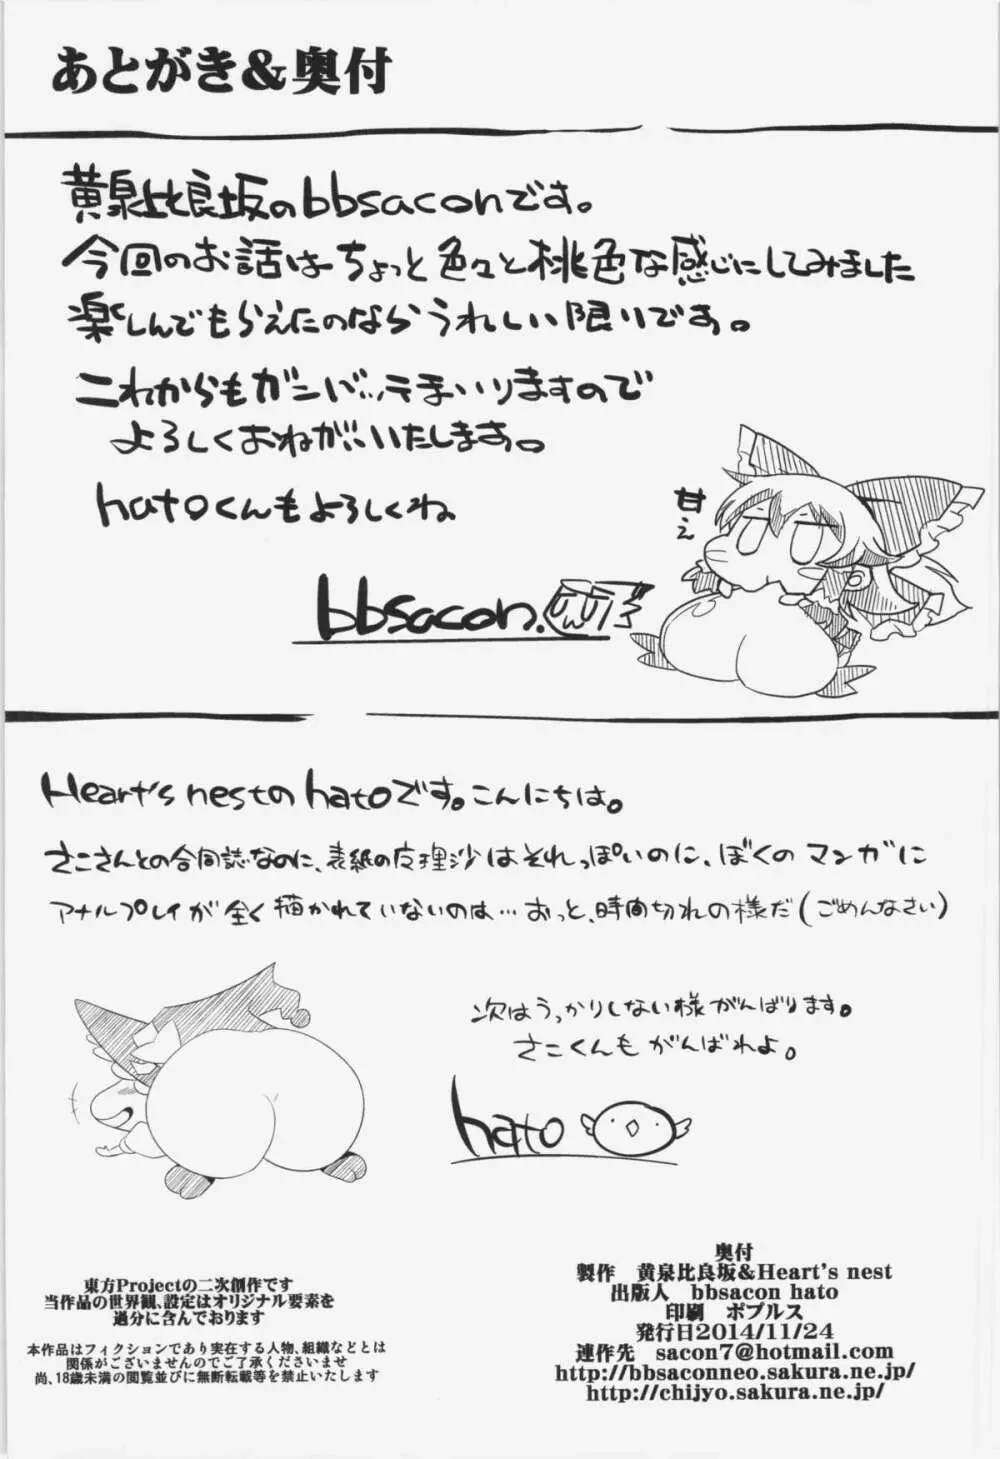 あとがき&奥付
黄泉比良坂のbbsaconです。
今回のお話はちょっと色々と桃色な感じにしてみました
楽しんでもらえたのならうれしい限りです。
これからもガンバッテまいりますので
よろしくおねがいいたします。
hatoくんもよろしくね
甘え
bbsacon.
Heart's nestのhatoです。こんにちは。
さこさんとの合同誌なのに、表紙の魔理沙はそれっぽいのに、ぼくのマンガに
アナルプレイが全く描かれていないのは…おっと、時間切れの様だ(ごめんなさい)
次はうっかりしない様がんばります。
さこくんもがんばれよ。
hato
東方Projectの二次創作です
当作品の世界観、設定はオリジナル要素を
過分に含んでおります
本作品はフィクションであり実在する人物、組織などとは
関係がございませんのでご了承くださいませ
尚、18歳未満の閲覧並びに無断転載等を禁止いたします
奥付
製作 黄泉比良坂&Heart's nest
出版人 bbsacon hato
印刷 ポプルス
発行日2014/11/24
連作先 sacon7@hotmail.com
http://bbsaconneo.sakura.ne.jp/
http://chijyo.sakura.ne.jp/